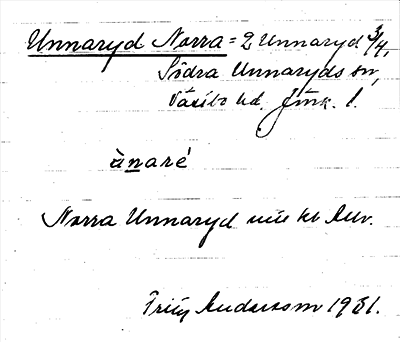 Unnaryd Norra = 2 Unnaryd 3/4,
Södra Unnaryds sn,
Västbo hd. Jönk. l.
ànaré
Norra Unnaryd
Fritz Anderson 1931.